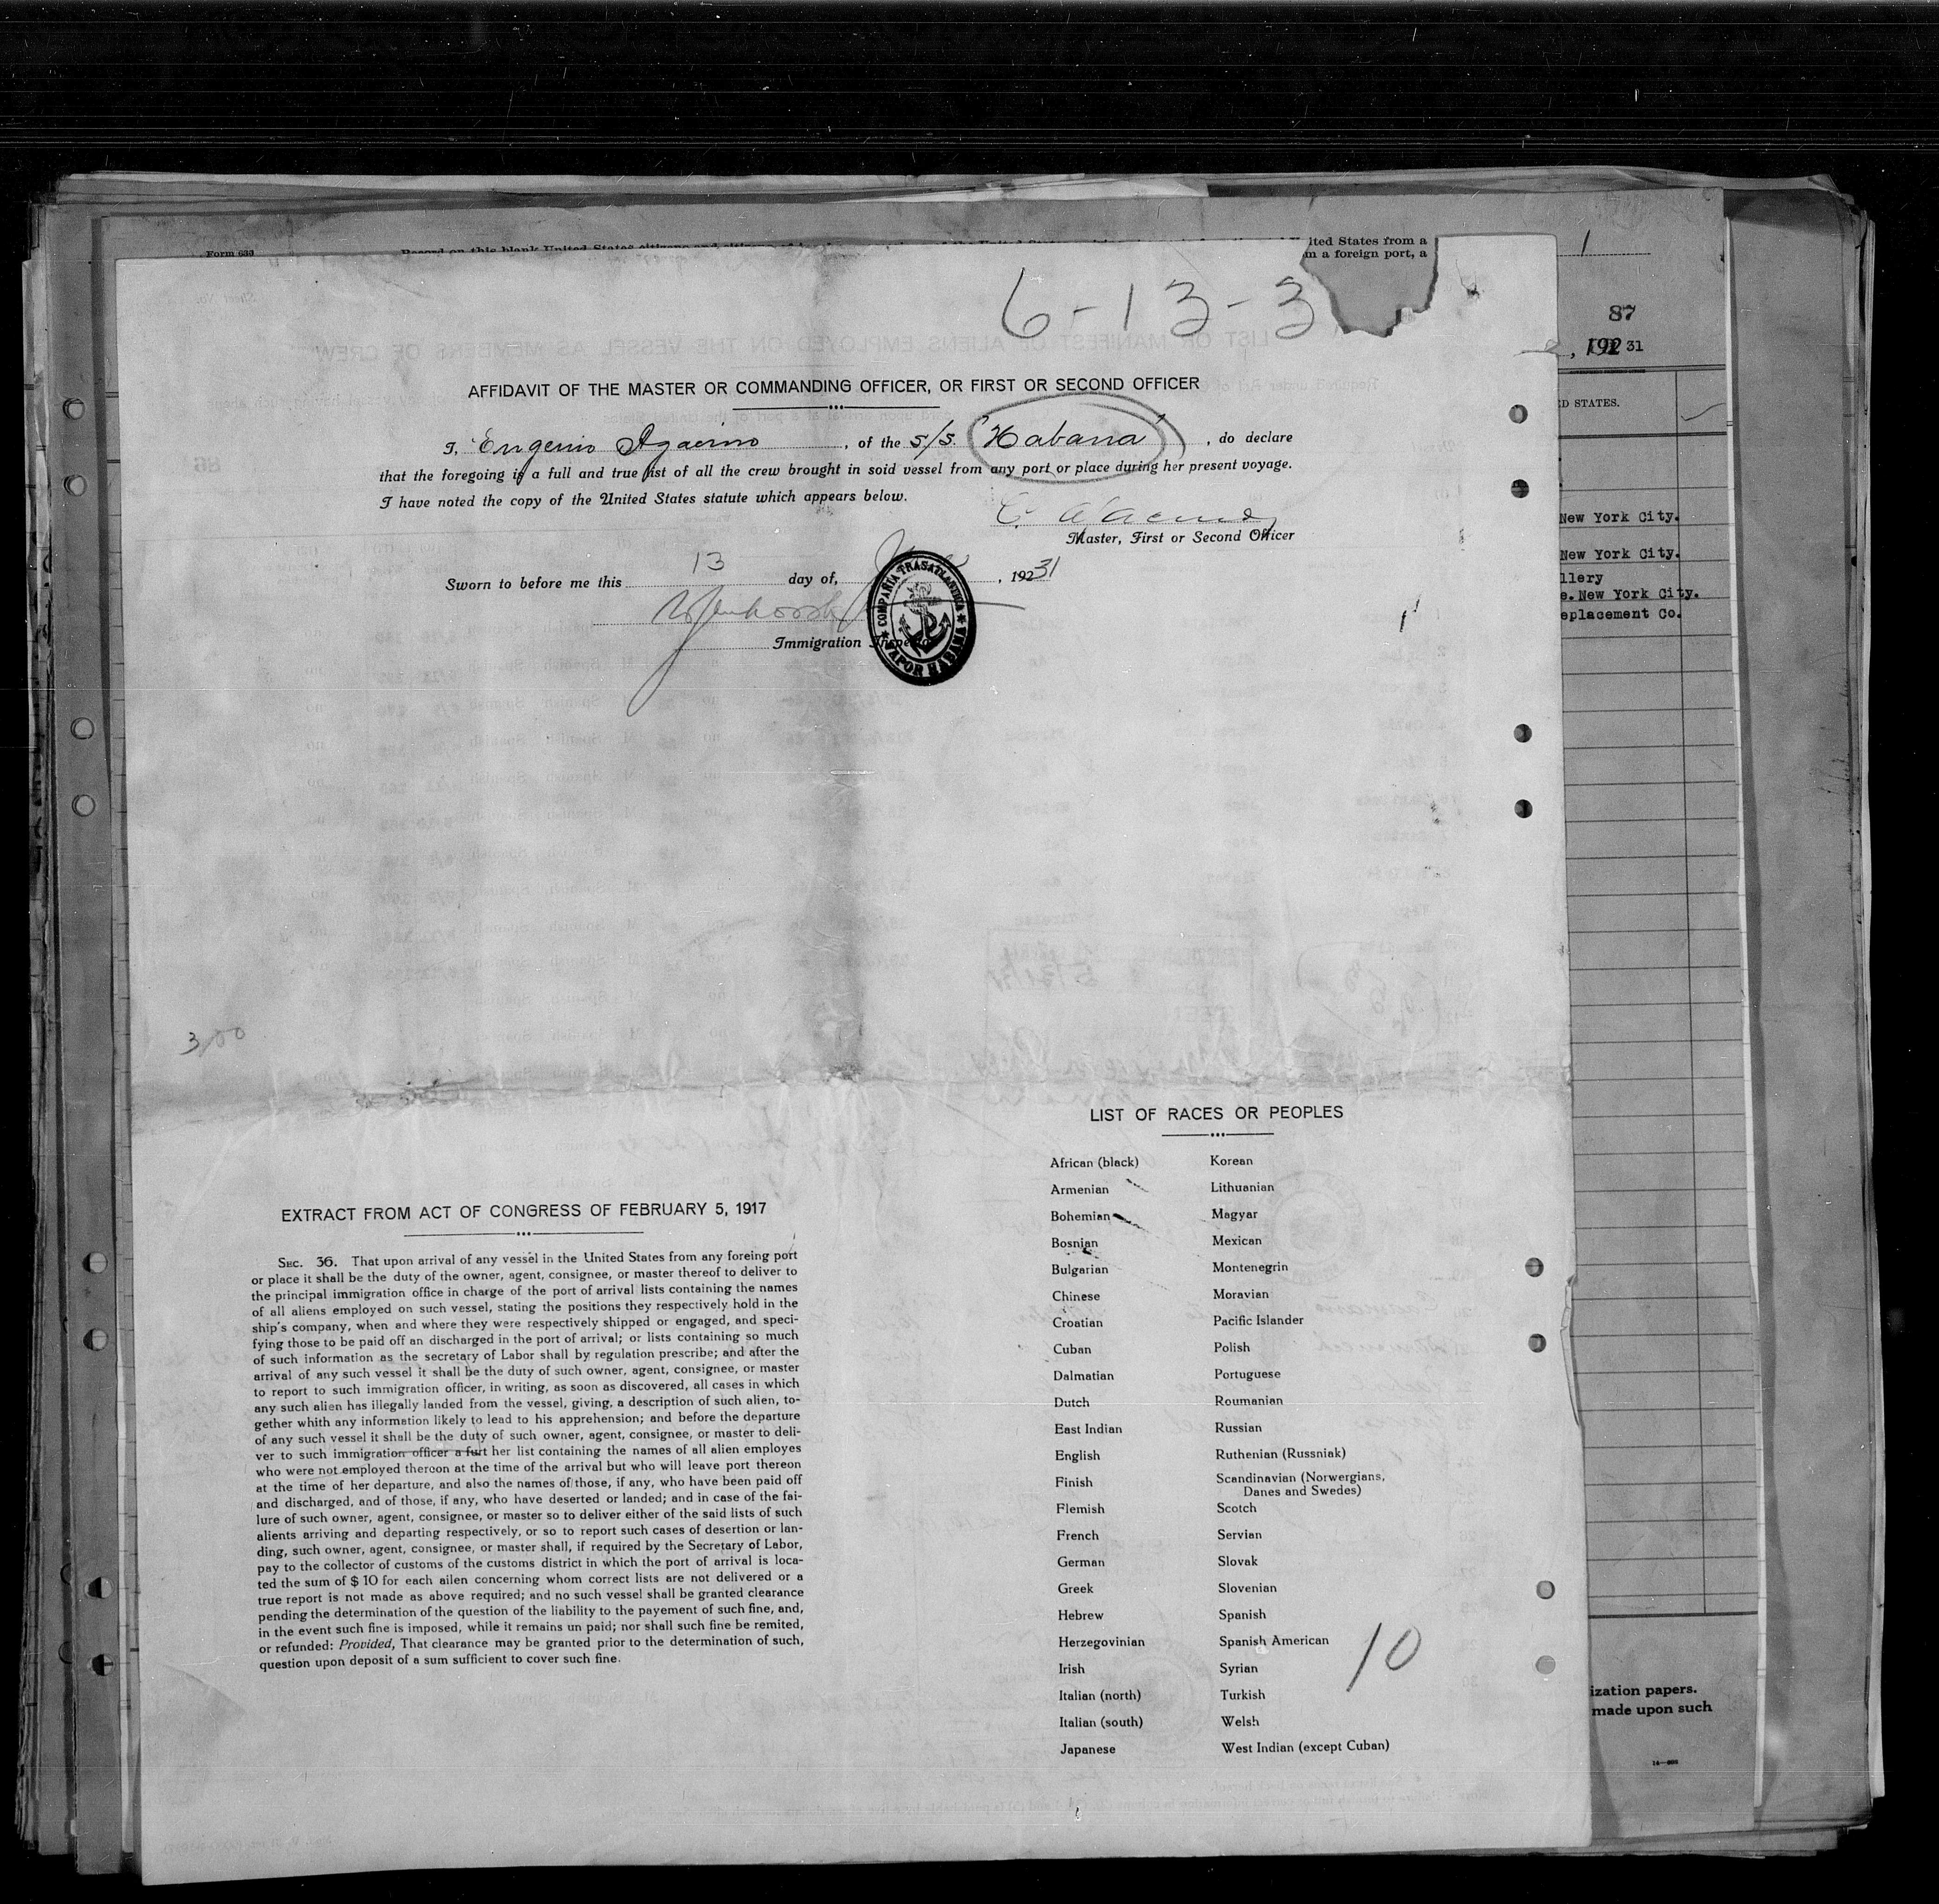 Form 630
ited States from a
m a foreign port, a
1
87
, 192 31
D STATES.
New York City.
New York City.
llery
e. New York City.
eplacement Co.
6-13-3
AFFIDAVIT OF THE MASTER OR COMMANDING OFFICER, OR FIRST OR SECOND OFFICER
I, Eugenio Agacino, of the s/s. "Habana", do declare
that the foregoing is a full and true list of all the crew brought in soid vessel from any port or place during her present voyage.
I have noted the copy of the United States statute which appears below.
Master, First or Second Officer
Sworn to before me this 13 day of, June, 19231
COMPAÑIA TRASATLANTICA
VAPOR HABANA
Immigration Inspector
300
EXTRACT FROM ACT OF CONGRESS OF FEBRUARY 5, 1917
SEC. 36. That upon arrival of any vessel in the United States from any foreing port
or place it shall be the duty of the owner, agent, consignee, or master thereof to deliver to
the principal immigration office in charge of the port of arrival lists containing the names
of all aliens employed on such vessel, stating the positions they respectively hold in the
ship's company, when and where they were respectively shipped or engaged, and speci-
fying those to be paid off an discharged in the port of arrival; or lists containing so much
of such information as the secretary of Labor shall by regulation prescribe; and after the
arrival of any such vessel it shall be the duty of such owner, agent, consignee, or master
to report to such immigration officer, in writing, as soon as discovered, all cases in which
any such alien has illegally landed from the vessel, giving, a description of such alien, to-
gether whith any information likely to lead to his apprehension; and before the departure
of any such vessel it shall be the duty of such owner, agent, consignee, or master to deli-
ver to such immigration officer a furt her list containing the names of all alien employes
who were not employed thereon at the time of the arrival but who will leave port thereon
at the time of her departure, and also the names of those, if any, who have been paid off
and discharged, and of those, if any, who have deserted or landed; and in case of the fai-
lure of such owner, agent, consignee, or master so to deliver either of the said lists of such
alients arriving and departing respectively, or so to report such cases of desertion or lan-
ding, such owner, agent, consignee, or master shall, if required by the Secretary of Labor,
pay to the collector of customs of the customs district in which the port of arrival is loca-
ted the sum of $ 10 for each ailen concerning whom correct lists are not delivered or a
true report is not made as above required; and no such vessel shall be granted clearance
pending the determination of the question of the liability to the payement of such fine, and,
in the event such fine is imposed, while it remains un paid; nor shall such fine be remited,
or refunded: Provided, That clearance may be granted prior to the determination of such,
question upon deposit of a sum sufficient to cover such fine.
LIST OF RACES OR PEOPLES
African (black) Korean
Armenian Lithuanian
Bohemian Magyar
Bosnian Mexican
Bulgarian Montenegrin
Chinese Moravian
Croatian Pacific Islander
Cuban Polish
Dalmatian Portuguese
Dutch Roumanian
East Indian Russian
English Ruthenian (Russniak)
Finish Scandinavian (Norwergians,
Danes and Swedes)
Flemish Scotch
French Servian
German Slovak
Greek Slovenian
Hebrew Spanish
Herzegovinian Spanish American
Irish Syrian
Italian (north) Turkish
Italian (south) Welsh
Japanese West Indian (except Cuban)
10
ization papers.
made upon such